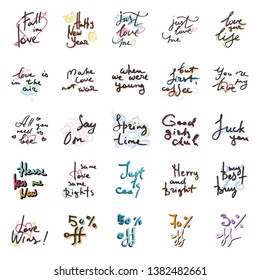 Fall
in
love
Happy
New
Year
Just
love
me
just
love
me
Love
your
life
Love is
in the
air
Make
love
not war
when
we were
young
But
first
coffee
You're
my
All you
need is
Say
Spring
time
Good
girls
club!
Same
love
same
rights
Just
be
cool
Merry
and
bright
my
Best
Love
Wins!
50%
off
50%
off
70%
off
30%
off
1382482661